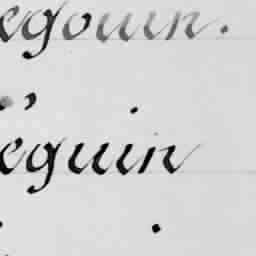 egouin.
eguin